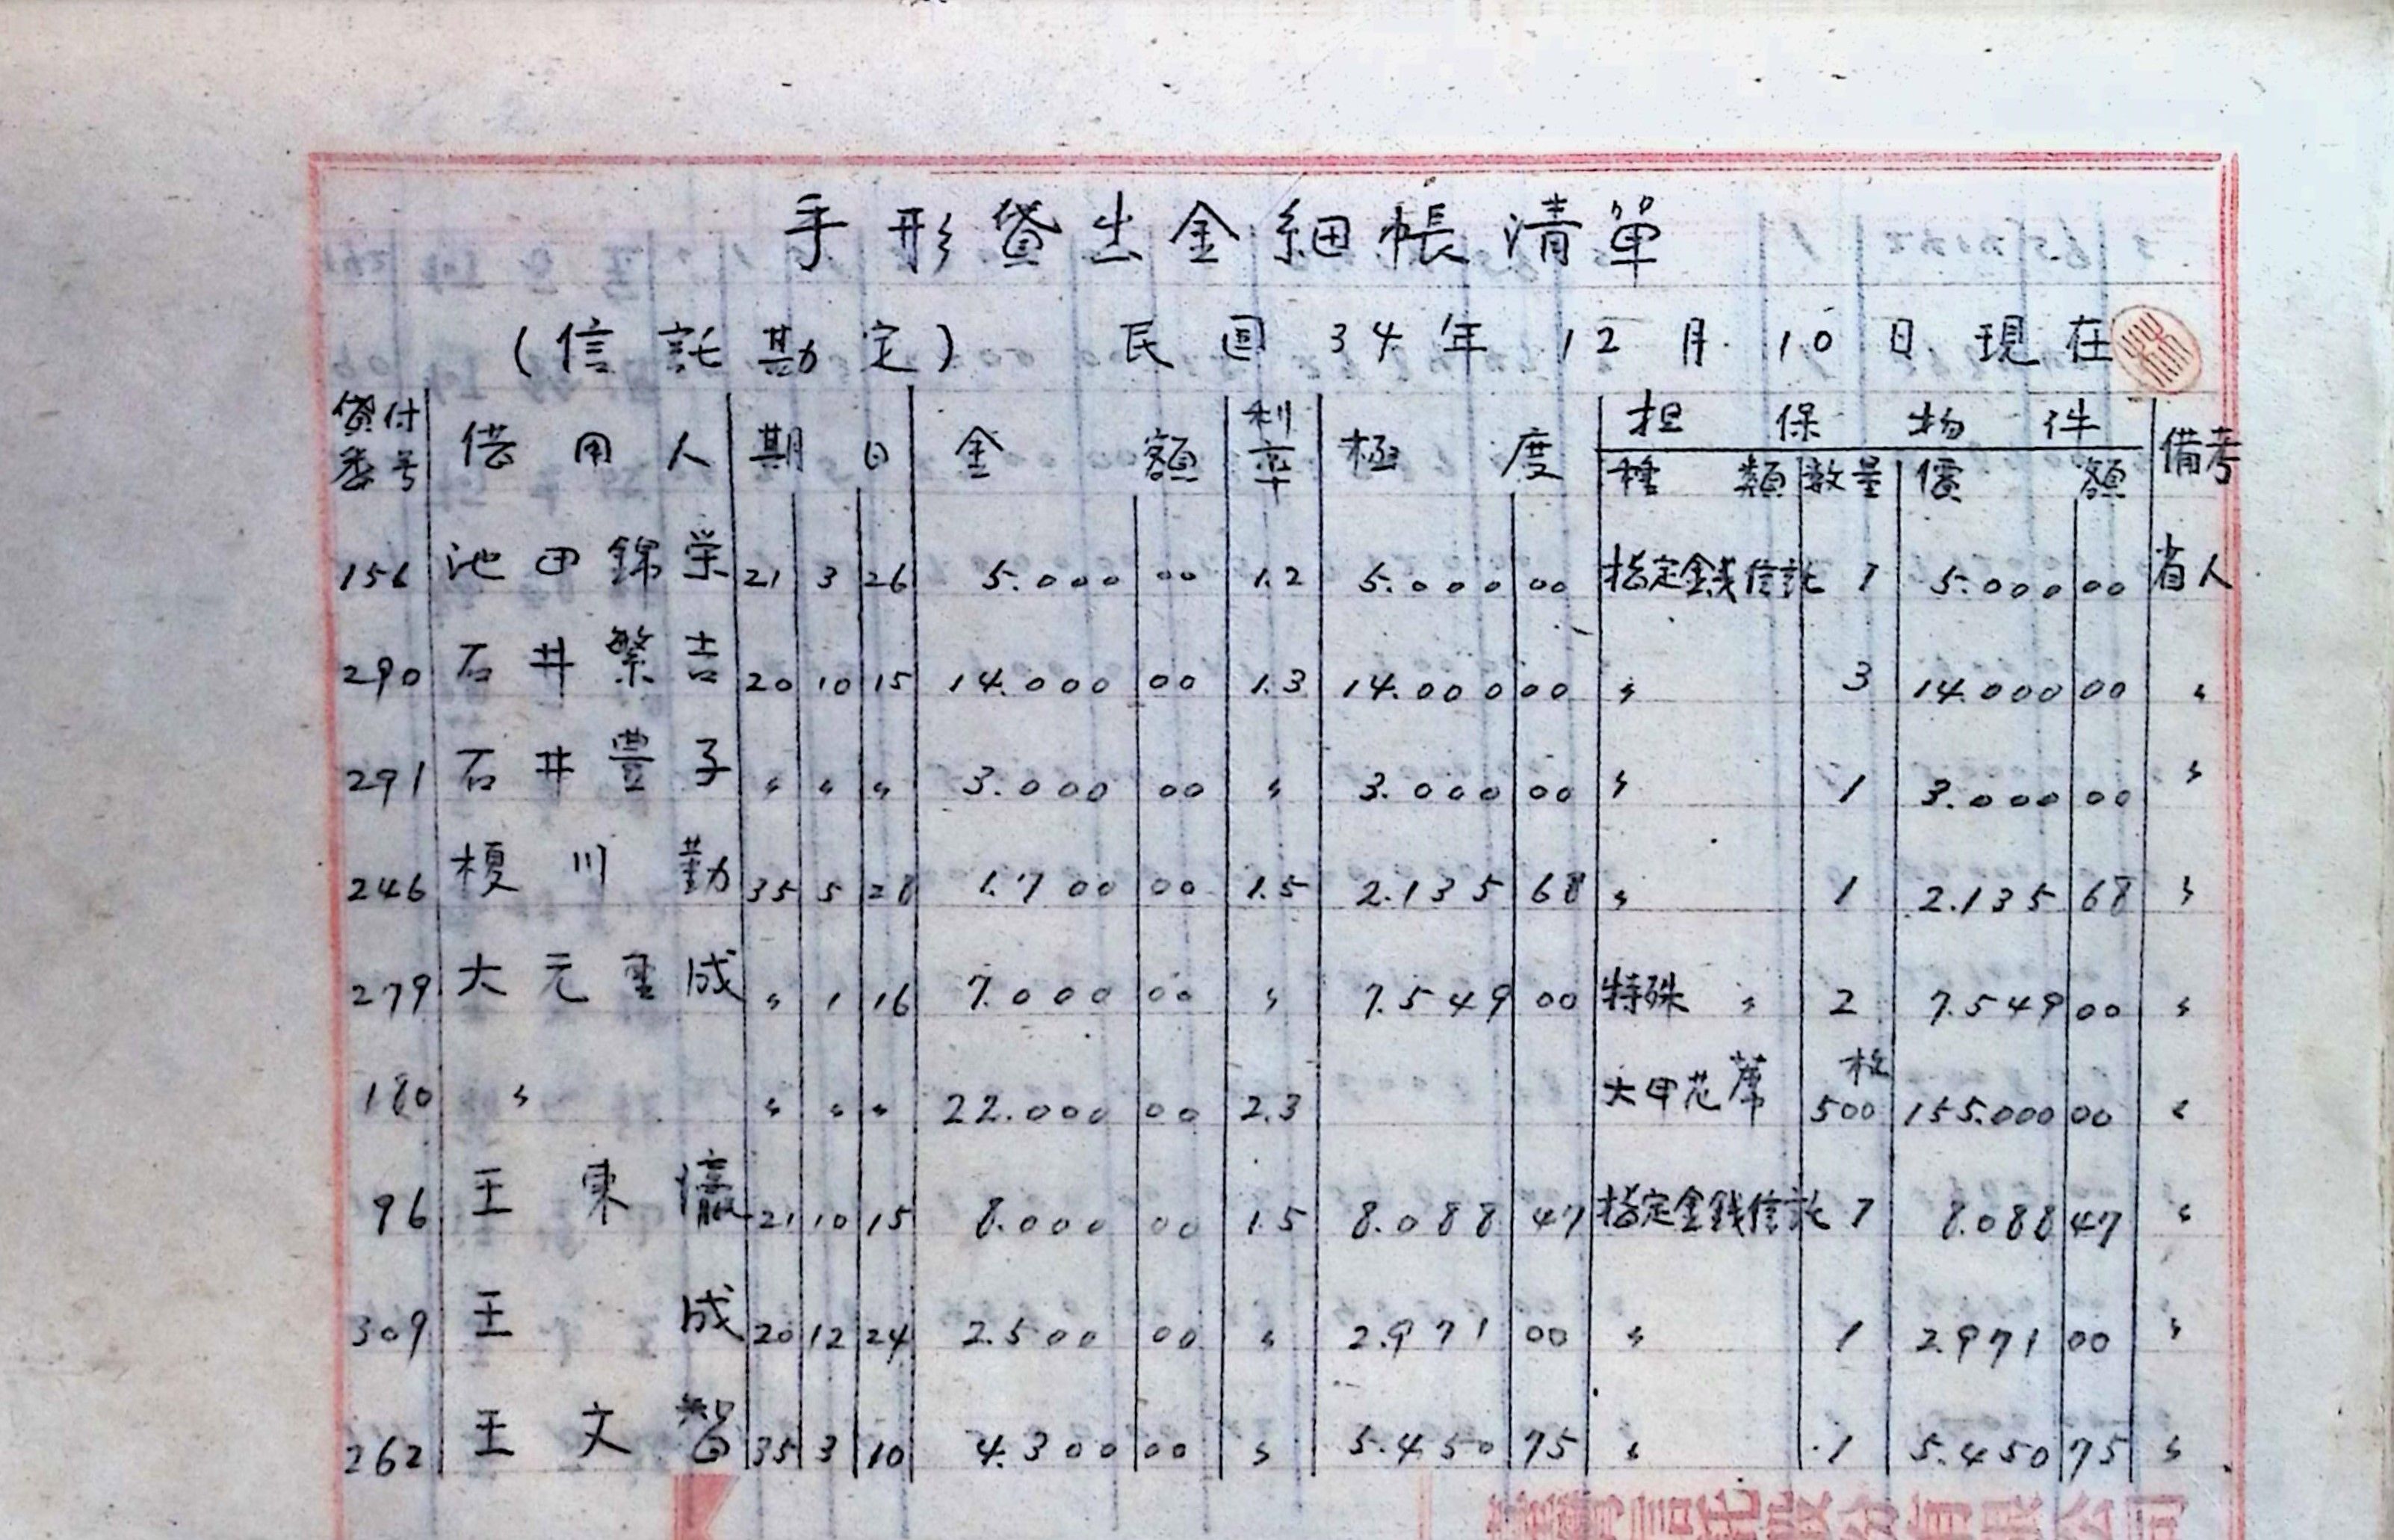 手形貸出金細帳清單
(信託勘定) 民国34年12月10日現在
貸付番号 借用人 期日 金額 利率 極度 担保物件 備考
種類 数量 價額
156 池田錦栄 21 3 26 5.000 00 1.2 5.000 00 指定金銭信託 1 5.000 00 省人
290 石井繁吉 20 10 15 14.000 00 1.3 14.000 00 〃 3 14.000 00 〃
291 石井豊子 〃 〃 〃 3.000 00 〃 3.000 00 〃 1 3.000 00 〃
246 榎川勤 35 5 28 1.700 00 1.5 2.135 68 〃 1 2.135 68 〃
279 大元重成 〃 1 16 7.000 00 〃 7.549 00 特殊 〃 2 7.549 00 〃
180 〃 〃 〃 〃 22.000 00 2.3 大甲花蓆 枚 500 155.000 00 〃
96 王東 21 10 15 8.000 00 1.5 8.088 47 指定金銭信託 7 8.088 47 〃
309 王成 20 12 24 2.500 00 〃 2.971 00 〃 1 2.971 00 〃
262 王文智 35 3 10 4.300 00 〃 5.450 75 〃 1 5.450 75 〃